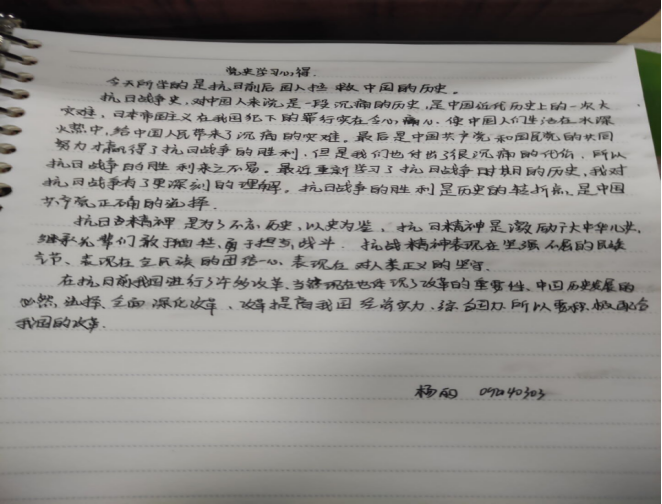 党史学习心得.
今天所学的是抗日前后国人拯救中国的历史。
抗日战争史,对中国人来说是一段沉痛的历史,是中国近代历史上的一次大
灾难,日本帝国主义在我国犯下的罪行实在令心痛心,使中国人们生活在水深
火热中,给中国人民带来了沉痛的灾难。最后是中国共产党和国民党的共同
努力才赢得了抗日战争的胜利,但是我们也付出了很沉痛的代价,所以
抗日战争的胜利来之不易。最近重新学习了抗日战争时期的历史,我对
抗日战争有了更深刻的理解。抗日战争的胜利是历史的转折点,是中国
共产党正确的选择.
抗日精神是为了不忘历史,以史为鉴,抗日精神是激励广大中华儿女,
继承先辈们敢于牺牲,勇于担当,战斗.抗战精神表现在坚强不屈的民族
气节、表现在全民族的团结一心、表现在对人类正义的坚守.
在抗日前我国进行了许多改革,当然现在也体现了改革的重要性、中国历史发展的
必然选择.全面深化改革、改革提高我国经济实力,综合国力.所以要积极配合
我国的改革.
杨 09240303